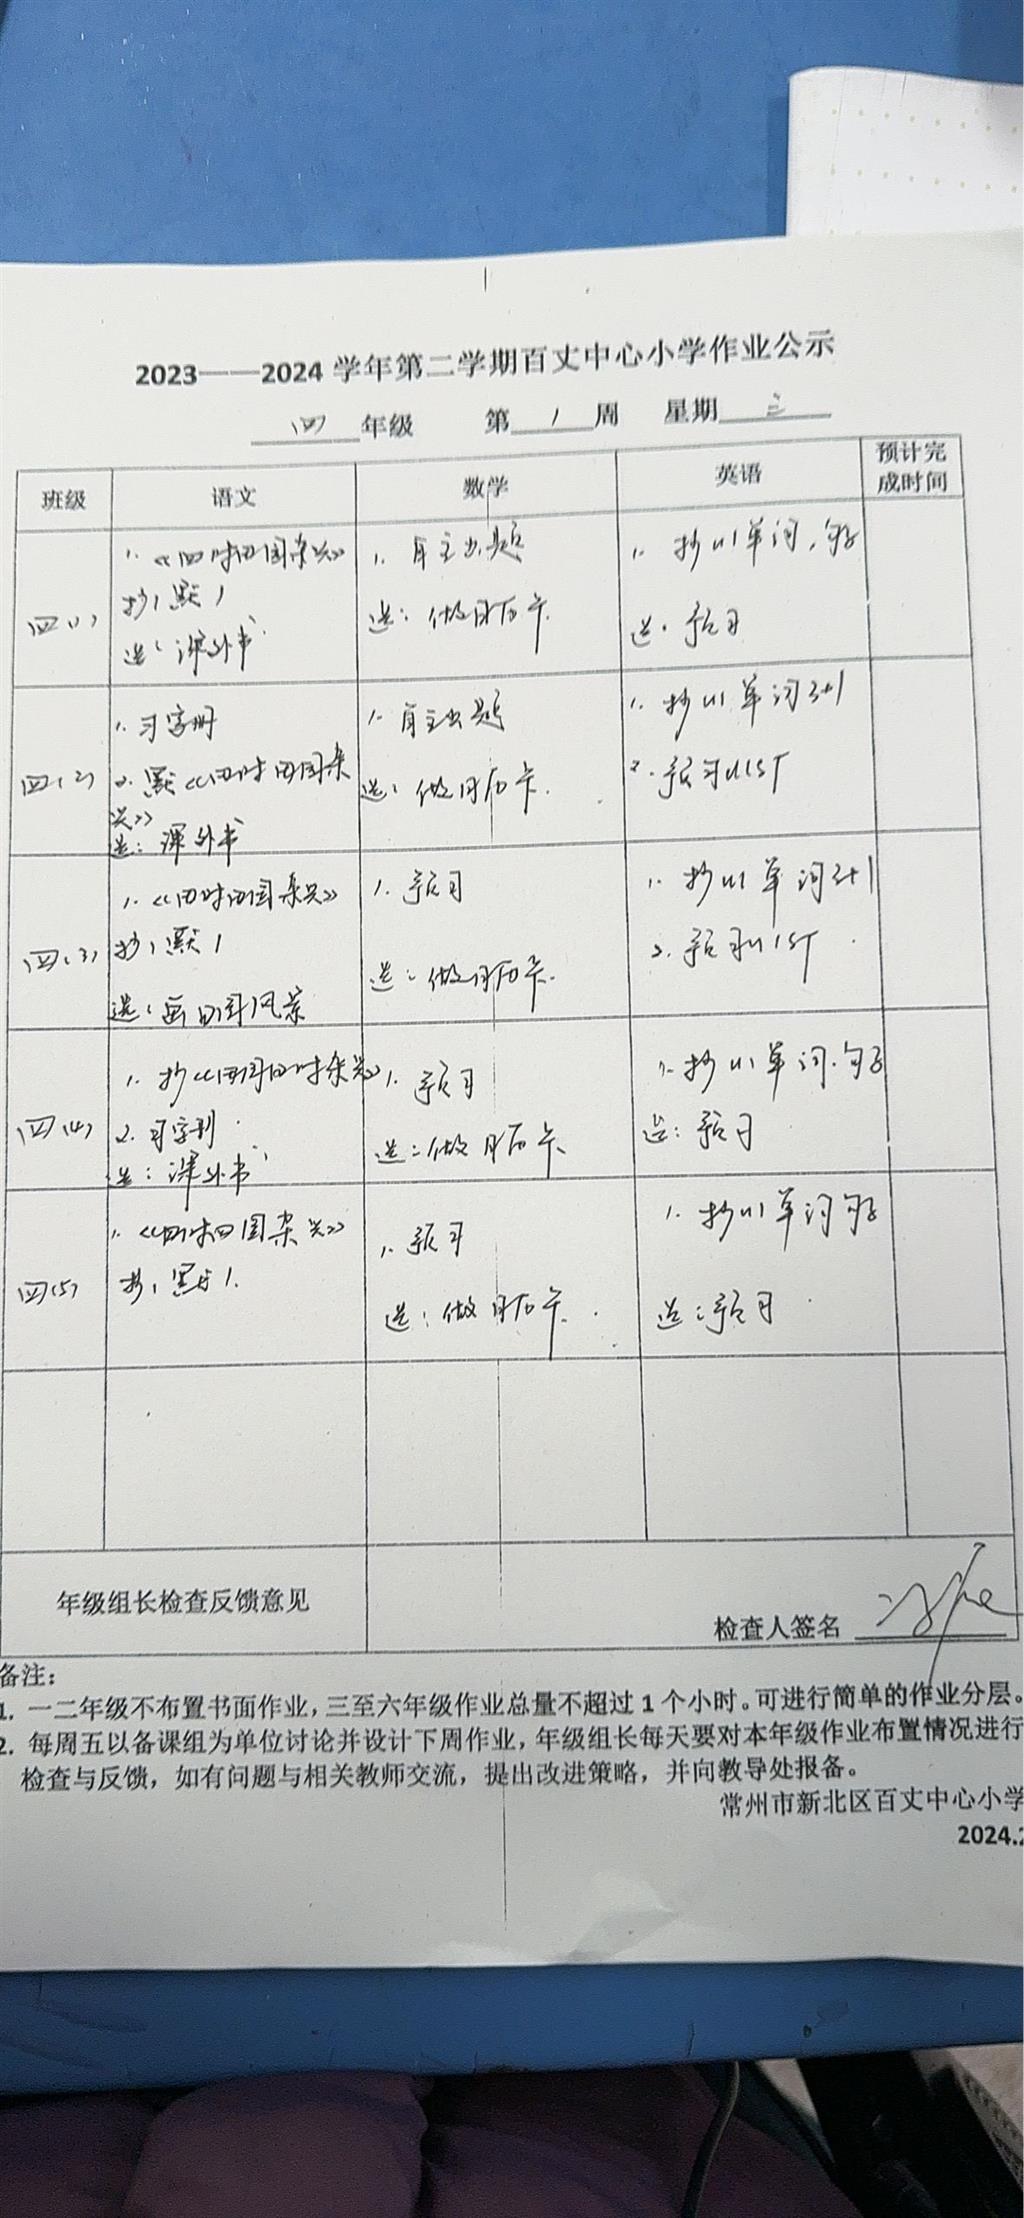 2023——2024 学年第二学期百丈中心小学作业公示
四 年级 第 1 周 星期 三
班级 语文 数学 英语 预计完成时间
四(1)
1.《四时田园杂兴》
抄1默1
选：课外书
1. 自主出题
选：做月历卡
1. 抄U1单词，句子
选：预习
四(2)
1. 习字册
2. 默《四时田园杂
兴》
选：课外书
1. 自主出题
选：做月历卡
1. 抄U1单词3+1
2. 预习U1ST
四(3)
1.《四时田园杂兴》
抄1默1
选：画田园风景
1. 预习
选：做月历卡
1. 抄U1单词3+1
2. 预习U1ST
四(4)
1. 抄《田园四时杂兴》
2. 习字册
选：课外书
1. 预习
选：做月历卡
1. 抄U1单词.句子
选：预习
四(5)
1.《四时田园杂兴》
抄1默1.
1. 预习
选：做月历卡
1. 抄U1单词句子
选：预习
年级组长检查反馈意见
检查人签名
备注：
1. 一二年级不布置书面作业，三至六年级作业总量不超过 1 个小时。可进行简单的作业分层。
2. 每周五以备课组为单位讨论并设计下周作业，年级组长每天要对本年级作业布置情况进行
检查与反馈，如有问题与相关教师交流，提出改进策略，并向教导处报备。
常州市新北区百丈中心小学
2024.2